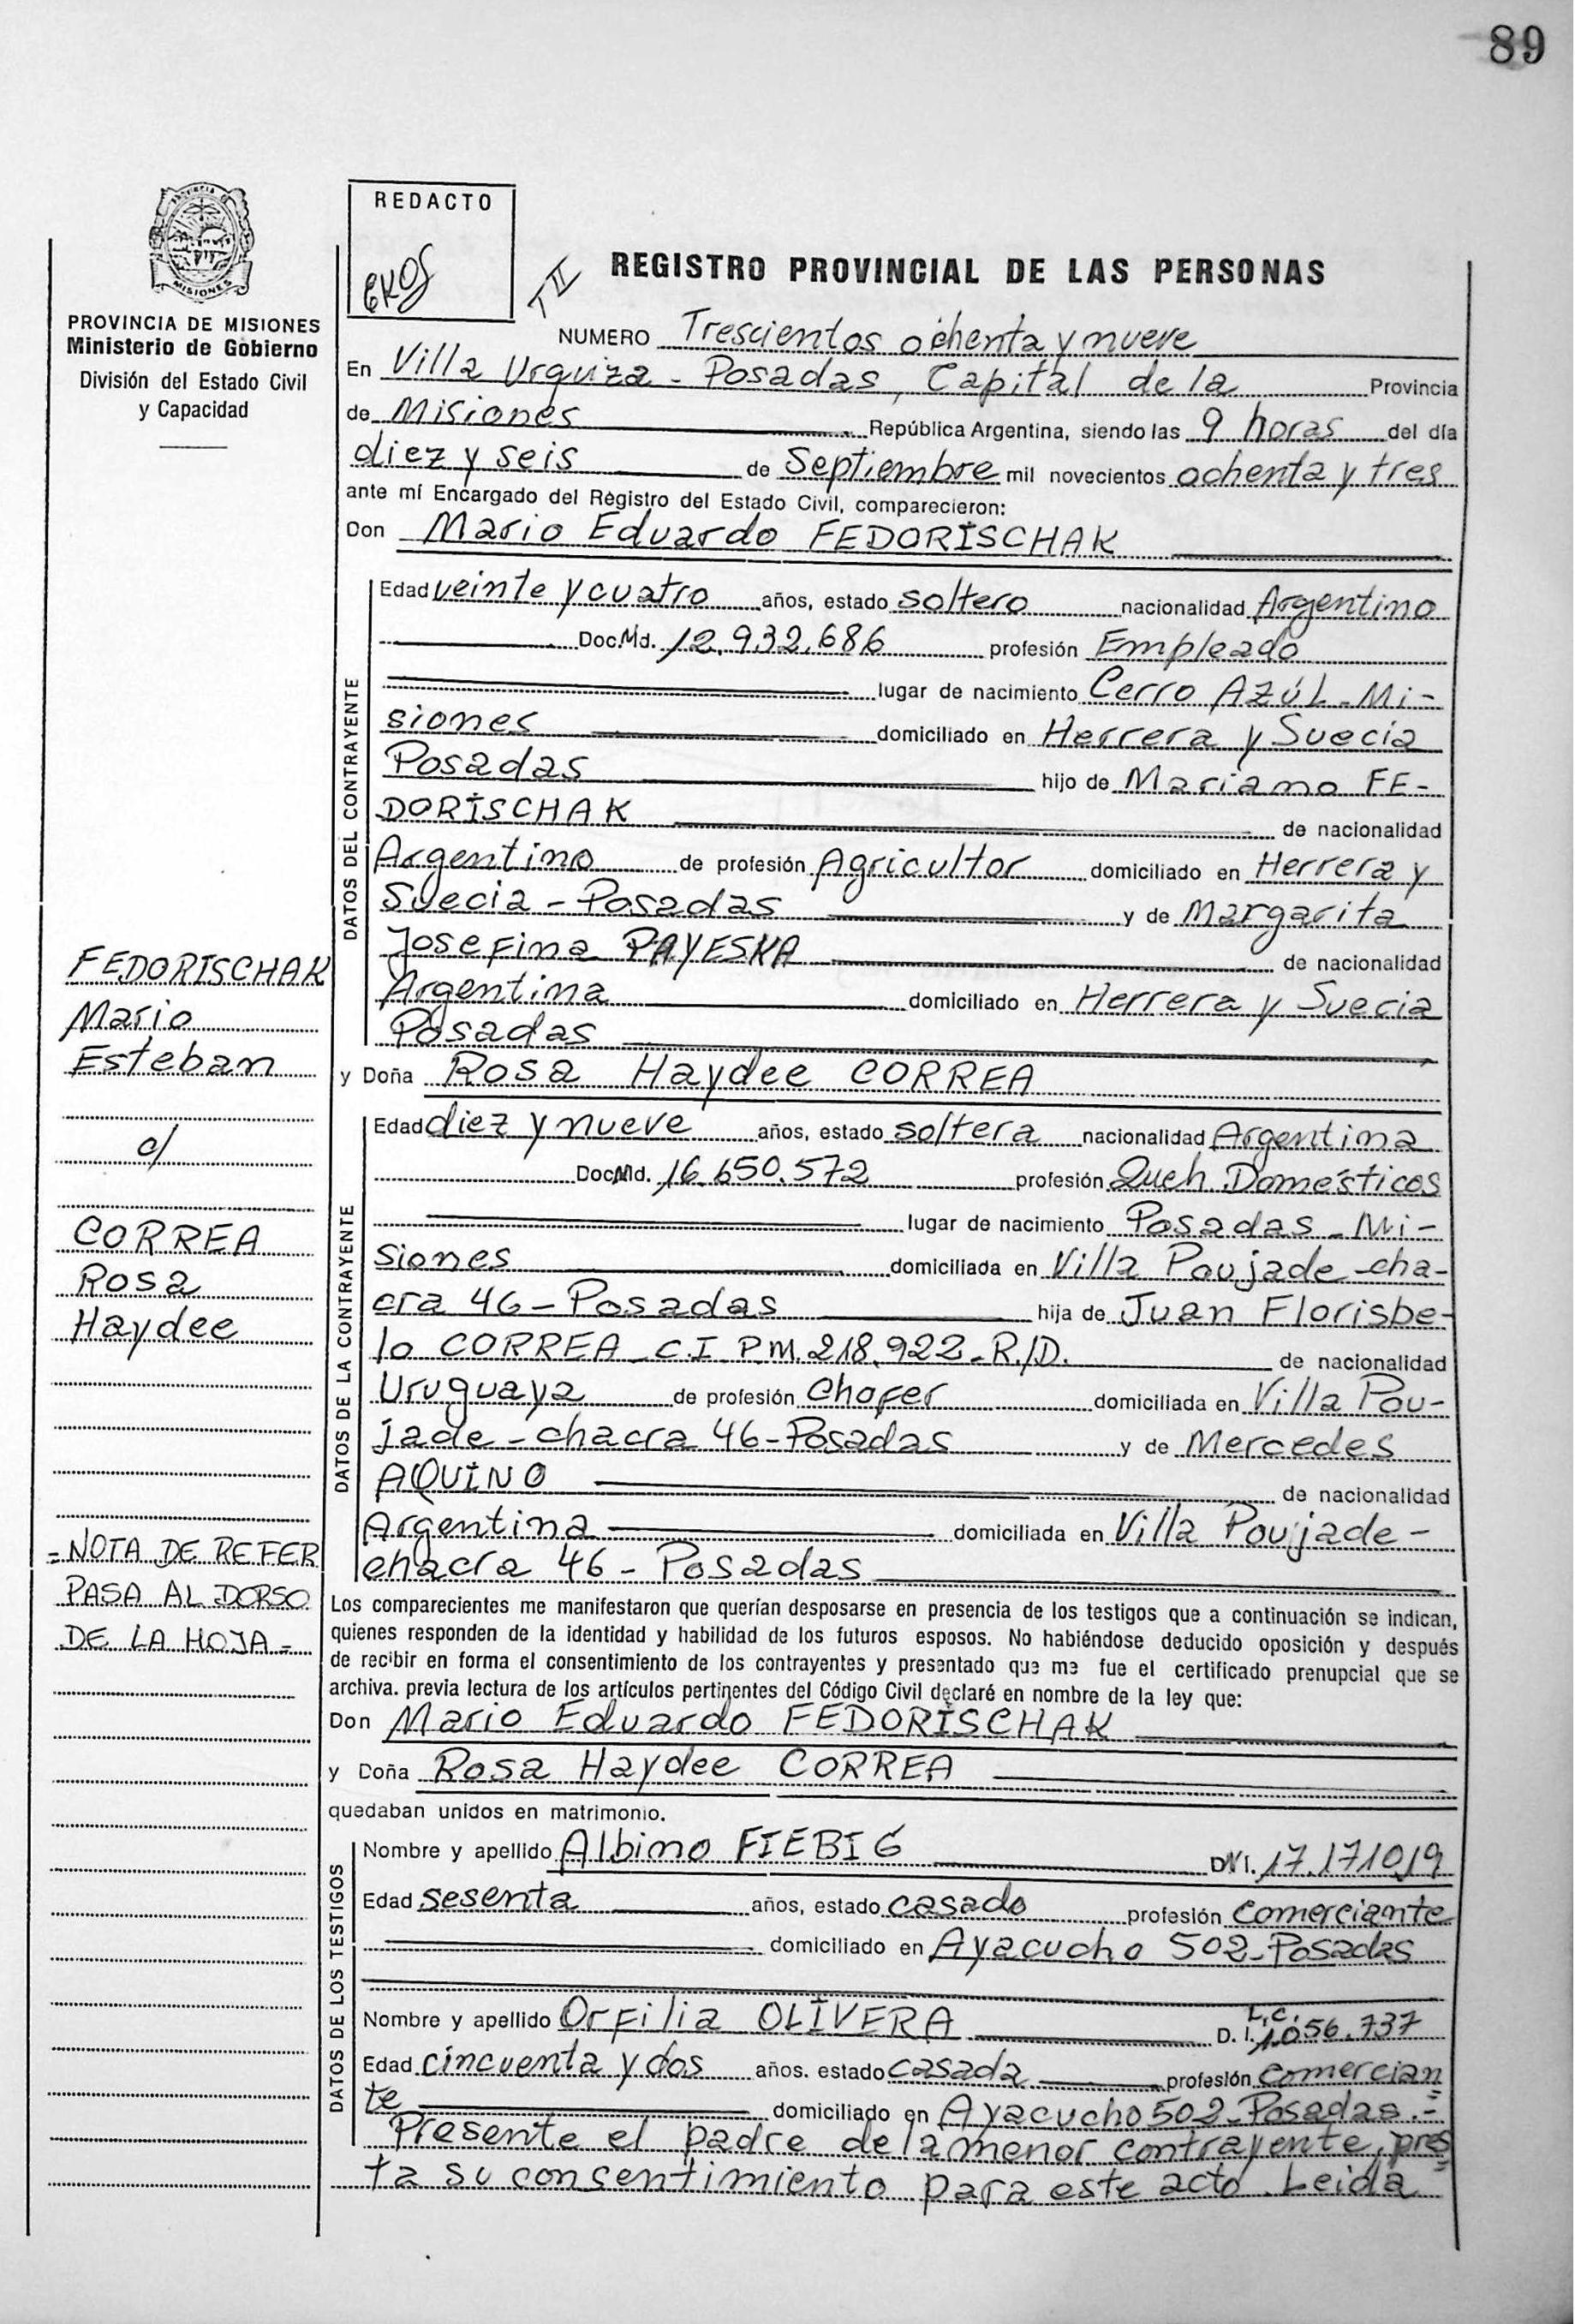 89
REDACTO
MISIONES
PROVINCIA DE MISIONES
Ministerio de Gobierno
División del Estado Civil
y Capacidad
T II
REGISTRO PROVINCIAL DE LAS PERSONAS
NUMERO Trescientos ochenta y nueve
En Villa Urquiza - Posadas, Capital de la Provincia
de Misiones República Argentina, siendo las 9 horas del día
diez y seis de Septiembre mil novecientos ochenta y tres
ante mí Encargado del Registro del Estado Civil, comparecieron:
Don Mario Eduardo FEDORISCHAK
DATOS DEL CONTRAYENTE
Edad veinte y cuatro años, estado soltero nacionalidad Argentino
Doc.Nd. 12.932.686 profesión Empleado
lugar de nacimiento Cerro AZÚL - Mi-
siones domiciliado en Herrera y Suecia
Posadas hijo de Mariano FE-
DORISCHAK de nacionalidad
Argentino de profesión Agricultor domiciliado en Herrera y
Suecia - Posadas y de Margarita
Josefina PAYESKA de nacionalidad
Argentina domiciliado en Herrera y Suecia
Posadas
y Doña Rosa Haydee CORREA
DATOS DE LA CONTRAYENTE
Edad diez y nueve años, estado soltera nacionalidad Argentina
Doc.Nd. 16.650.572 profesión Queh. Domésticos
lugar de nacimiento Posadas - Mi-
siones domiciliada en Villa Poujade - cha-
cra 46 - Posadas hija de Juan Florisbe-
lo CORREA - C.I P.M. 218.922 - R./D. de nacionalidad
Uruguaya de profesión Chofer domiciliada en Villa Pou-
jade - chacra 46 - Posadas y de Mercedes
AQUINO de nacionalidad
Argentina domiciliada en Villa Poujade -
chacra 46 - Posadas
Los comparecientes me manifestaron que querían desposarse en presencia de los testigos que a continuación se indican,
quienes responden de la identidad y habilidad de los futuros esposos. No habiéndose deducido oposición y después
de recibir en forma el consentimiento de los contrayentes y presentado que me fue el certificado prenupcial que se
archiva. previa lectura de los artículos pertinentes del Código Civil declaré en nombre de la ley que:
Don Mario Eduardo FEDORISCHAK
y Doña Rosa Haydee CORREA
quedaban unidos en matrimonio.
DATOS DE LOS TESTIGOS
Nombre y apellido Albino FIEBIG DNI. 17.171019
Edad sesenta años, estado casado profesión Comerciante
domiciliado en Ayacucho 502 - Posadas
Nombre y apellido Orfilia OLIVERA L.C. D. I. 1.056.737
Edad cincuenta y dos años. estado casada profesión comercian
te domiciliado en Ayacucho 502 - Posadas.=
Presente el padre de la menor contrayente, pres
ta su consentimiento para este acto. Leida
FEDORISCHAK
Mario
Esteban
c/
CORREA
Rosa
Haydee
=NOTA DE REFER
PASA AL DORSO
DE LA HOJA=